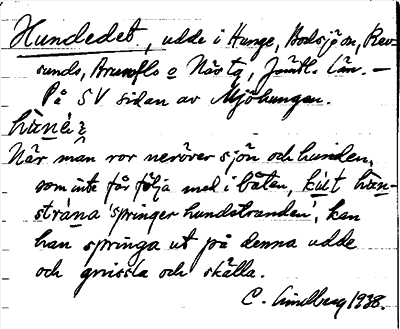 Hundedet, udde i Hunge, Bodsjö sn, Rev-
sunds, Brunflo o Näs tg, Jämtl. län. —
På SV sidan av Mjöhungen.
När man ror neröver sjön och hunden,
som inte får följa med i båten,
springer hundstranden, kan
han springa ut på denna udde
och gnissla och skälla.
C. Lindberg 1938.